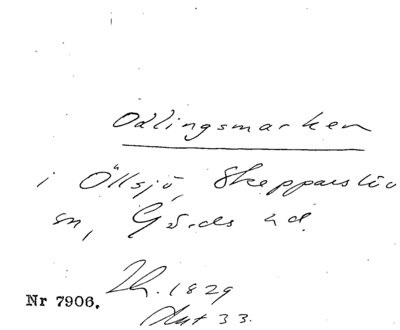 Odlingsmarken
i Öllsjö, Skepparslöv
sn, Gärds hd.
1829
Nr 7906.
33.